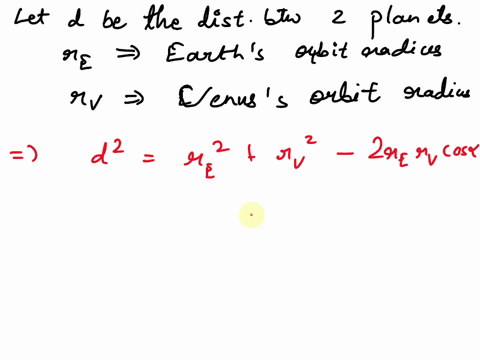 Let d be the dist. btw 2 planets.
r_E ⇒ Earth's orbit radius
r_V ⇒ Venus's orbit radius
⇒ d² = r_E² + r_V² − 2r_E r_V cosα